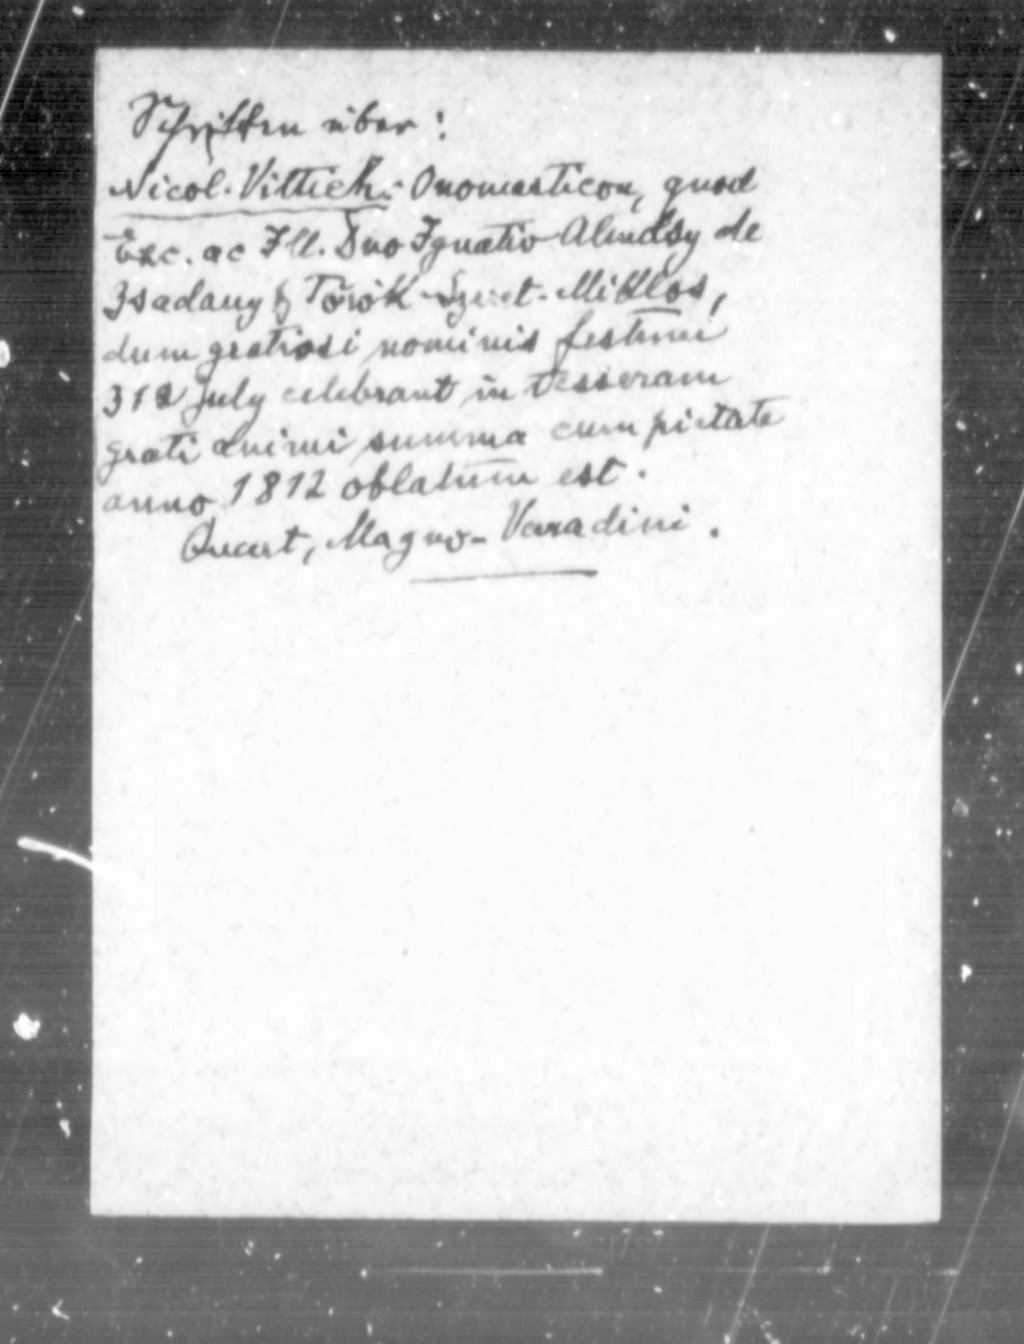 Schriften über:
Nicol. Vittich: Onomasticon, quod
Exc. ac Ill. Dno Ignatio Almásy de
Zsadany & Török-Szent-Miklos,
dum gratiosi nominis festum
31a July celebrant in tesseram
grati animi summa cum pietate
anno 1812 oblatum est.
Quart, Magno-Varadini.